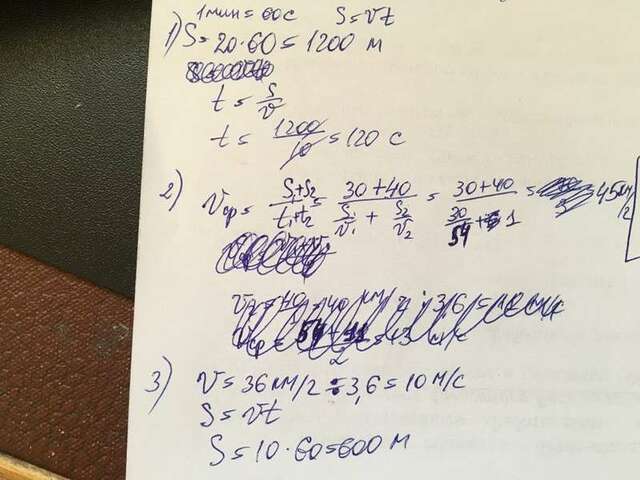 1 мин = 60с S = vt
1) S = 20·60 = 1200 м
t = S/v
t = 1200/10 = 120 с
2) Vср = S₁+S₂/t₁+t₂ = 30+40/(S₁/v₁ + S₂/v₂) = 30+40/(30/54 + 1) = 45км/2
3) V = 36 км/2 : 3,6 = 10 м/с
S = vt
S = 10·60 = 600 м